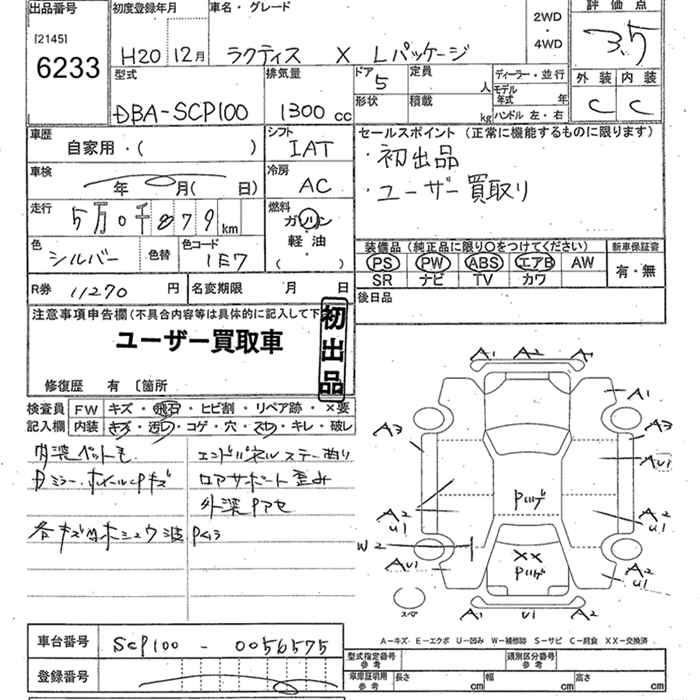 出品番号
[2145]
6233
初度登録年月
H20 12月
車名・グレード
ラクティス X Lパッケージ
2WD
・
4WD
評価点
3.5
外装 内装
C C
型式
DBA-SCP100
排気量
1300 cc
ドア
5
定員
人
形状
積載
kg
ディーラー・並行
モデル
年式 年
ハンドル 左・右
車歴
自家用・( )
シフト
IAT
車検
年 月( 日)
冷房
AC
走行
5万0千879 km
燃料
ガソリン
・
軽油
( )
色
シルバー
色替
色コード
1E7
R券
11270 円
名変期限 月 日
セールスポイント (正常に機能するものに限ります)
・初出品
・ユーザー買取り
装備品(純正品に限り○をつけてください)
PS PW ABS エアB AW
SR ナビ TV カワ
新車保証書
有・無
後日品
注意事項申告欄(不具合内容等は具体的に記入して下
ユーザー買取車
初出品
修復歴 有 〔箇所
検査員
記入欄
FW キズ・飛石・ヒビ割・リペア跡・×要
内装 キズ・汚レ・コゲ・穴・スレ・キレ・破レ
内装ペット毛
エンドパネル ステー曲り
Dミラー・ホイールCPキズ
ロアサポート歪み
外装Pアセ
A1 A2 A1
A1
A3
A3
AU1
Pハゲ
A2
U1
A2
U1
W2
XX
Pハゲ
AU1
A2
U1
スペ
A1 U1 A2
A-キズ E-エクボ U-凹み W-補修跡 S-サビ C-腐食 XX-交換済
車台番号
SCP100 - 0056575
登録番号
型式指定番号
参考
類別区分番号
参考
車庫証明用
参考
長さ cm
幅 cm
高さ cm